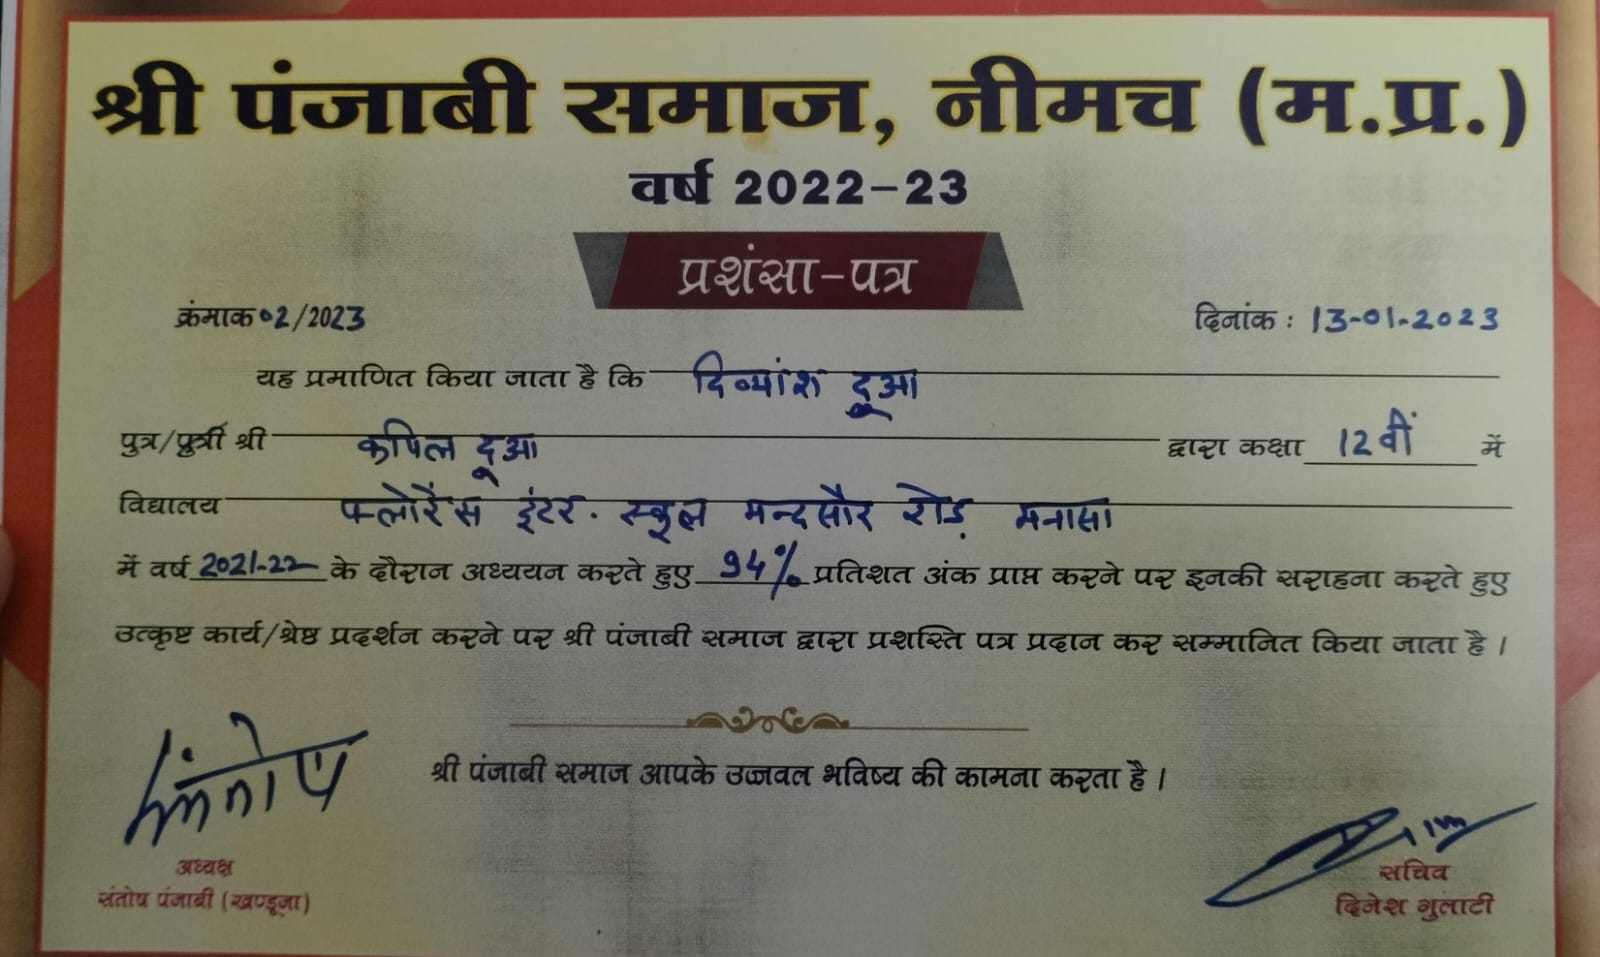 श्री पंजाबी समाज, नीमच (म.प्र.)
वर्ष 2022-23
प्रशंसा-पत्र
क्रंमाक 02/2023 दिनांक : 13-01-2023
यह प्रमाणित किया जाता है कि दिव्यांश दूआ
पुत्र/पुत्री श्री कपिल दूआ द्वारा कक्षा 12वीं में
विद्यालय फ्लोरेंस इंटर. स्कूल मन्दसौर रोड़ मनासा
में वर्ष 2021-22 के दौरान अध्ययन करते हुए 94% प्रतिशत अंक प्राप्त करने पर इनकी सराहना करते हुए
उत्कृष्ट कार्य/श्रेष्ठ प्रदर्शन करने पर श्री पंजाबी समाज द्वारा प्रशस्ति पत्र प्रदान कर सम्मानित किया जाता है।
श्री पंजाबी समाज आपके उज्जवल भविष्य की कामना करता है।
संतोष
अध्यक्ष
संतोष पंजाबी (खण्डूजा)
सचिव
दिनेश गुलाटी